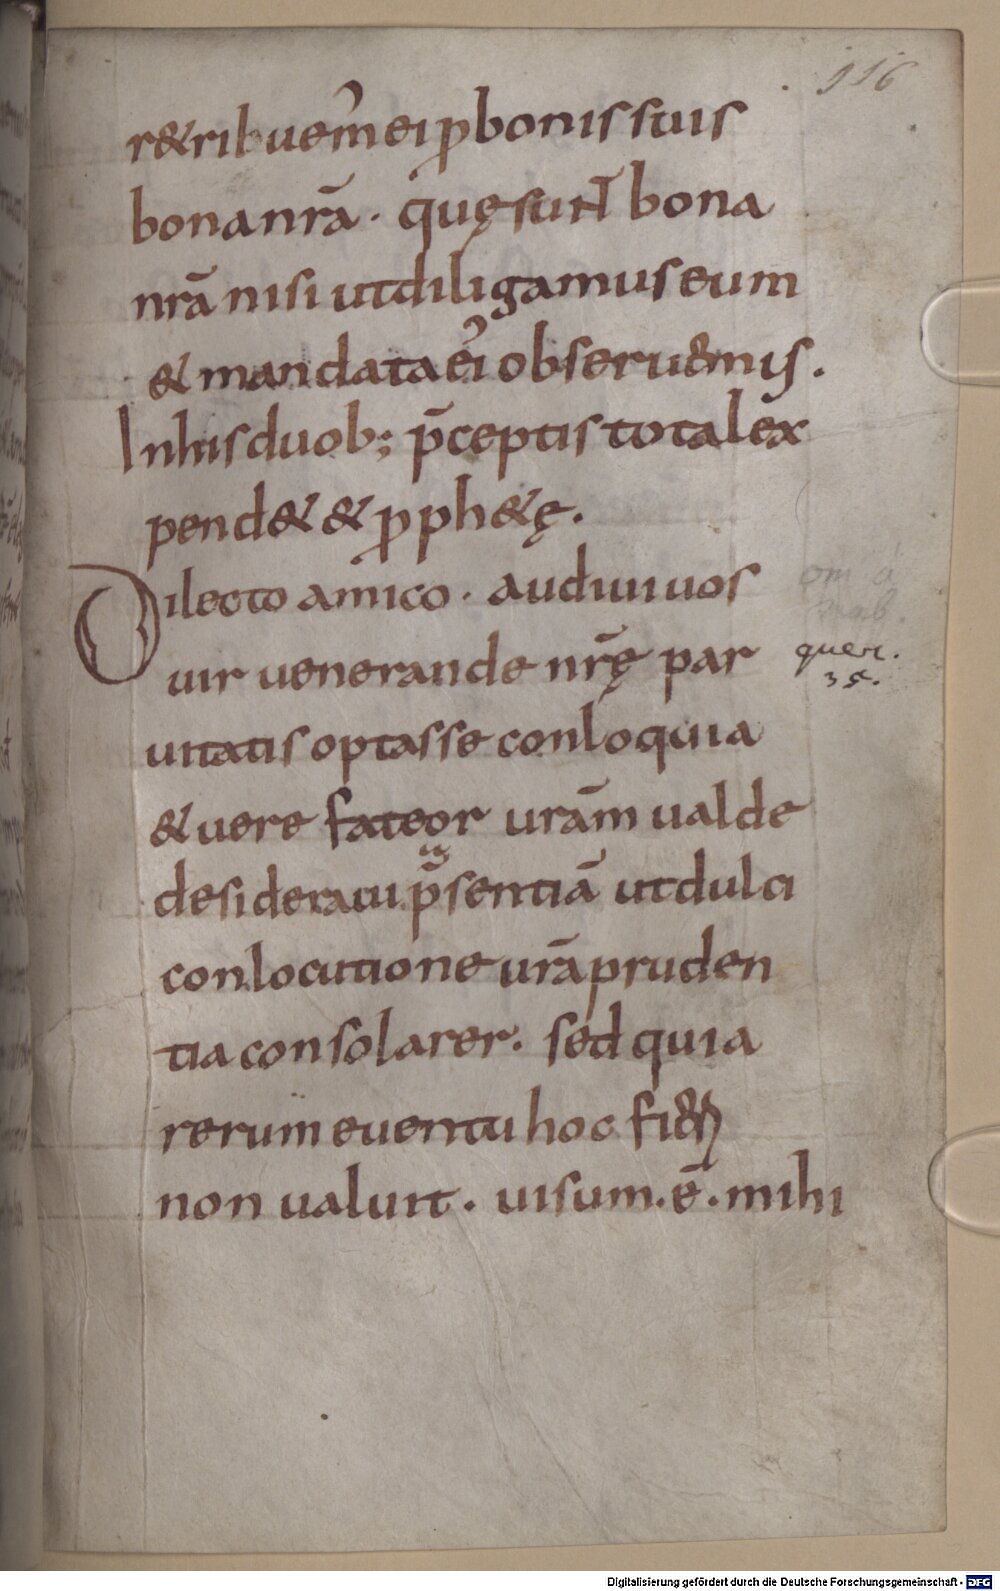 116
r&ribuem̉ ei ꝓ bonis suis
bona nr̄a · quę sunt̄ bona
nr̄a nisi ut diligamus eum
& mandata ei᾿ obseruem᾿ ijs .
In his duob; p̄ceptis tota lex̄
pend& & ꝓph&ę .
Dilecto amico · audiui uos
uir uenerande nr̄ę par
uitatis optasse conloquia
& uere fateor ur̄am ualde
desideraui p̄sentiā ut dulci
conlocutione ur̄a pruden
tia consolarer . sed quia
rerum euentu hoc fi
non ualuit . uisum . ē . mihi
om a
quer.
35.
Digitalisierung gefördert durch die Deutsche Forschungsgemeinschaft - DFG